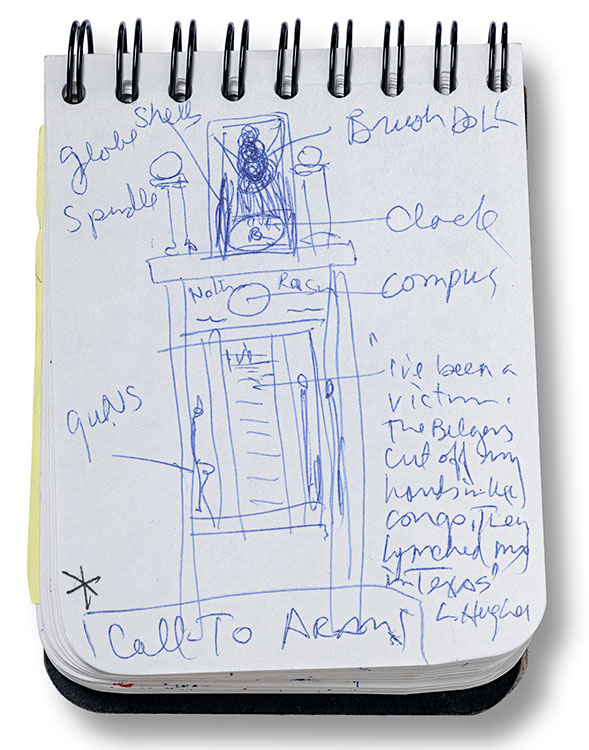 Shells
globe
Brush DoLL
Spindle
Clock
compus
"I've been a
victim.
The Belgens
cut off my
hands in the
congo. They
lynched me
in Texas"
L. Hughes
guNS
Call To